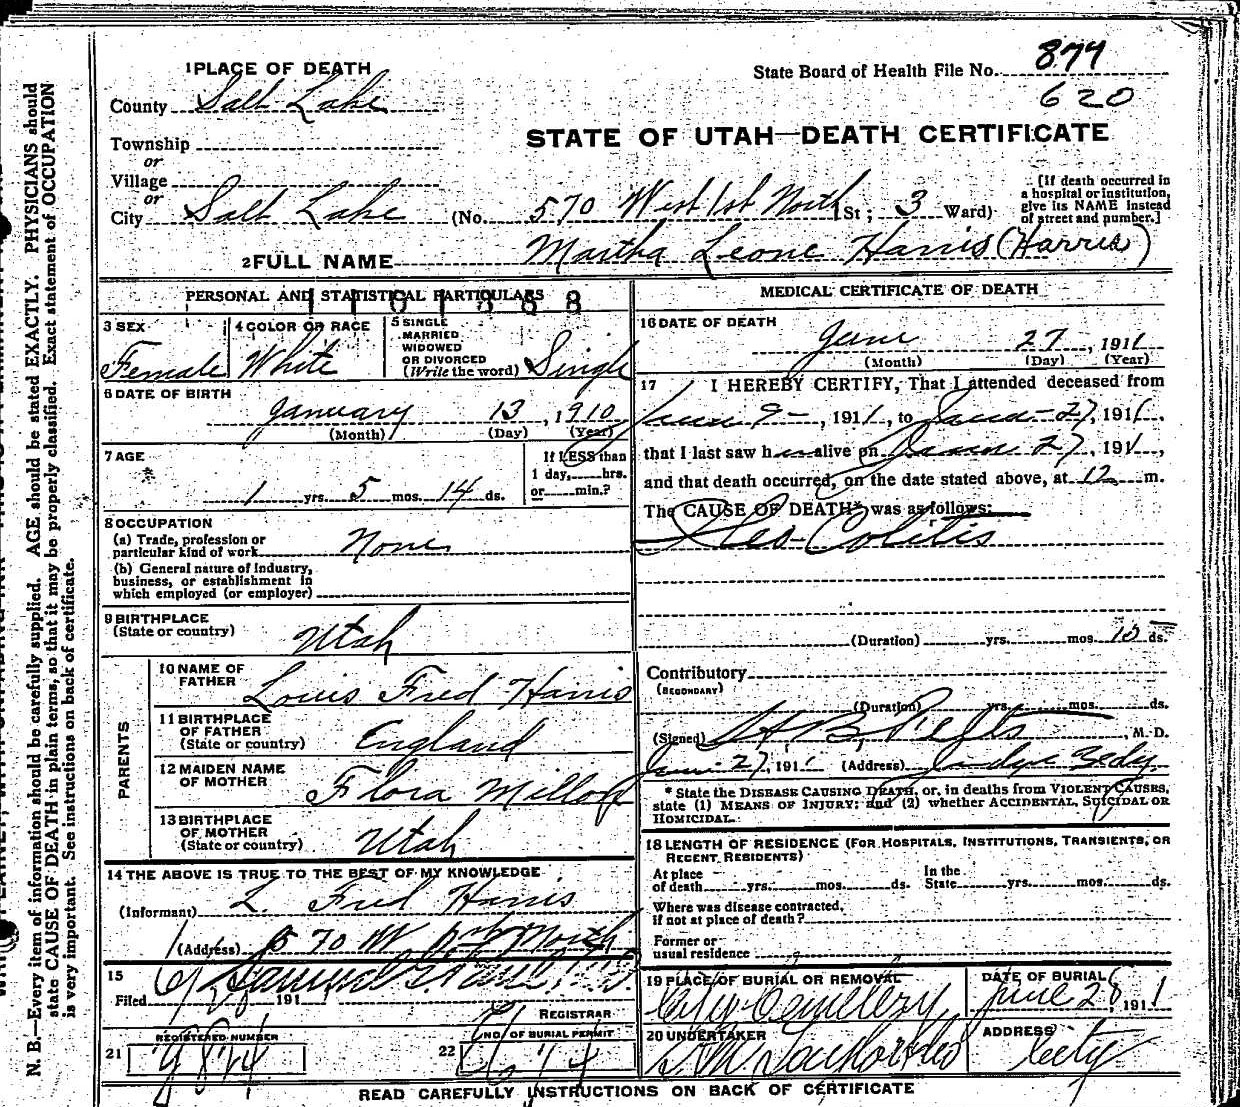 1 PLACE OF DEATH
State Board of Health File No. 874
County Salt Lake
620
STATE OF UTAH—DEATH CERTIFICATE
Township
or
Village
or
City Salt Lake (No. 570 West 1st North St; 3 Ward)
[If death occurred in a hospital or institution, give its NAME instead of street and number.]
2 FULL NAME Martha Leone Harris (Harris)
PERSONAL AND STATISTICAL PARTICULARS
3 SEX Female
4 COLOR OR RACE White
5 SINGLE MARRIED WIDOWED OR DIVORCED (Write the word) Single
6 DATE OF BIRTH
January 13, 1910
(Month) (Day) (Year)
7 AGE
1 yrs. 5 mos. 14 ds.
If LESS than 1 day, hrs. or min.?
8 OCCUPATION
(a) Trade, profession or particular kind of work None
(b) General nature of Industry, business, or establishment in which employed (or employer)
9 BIRTHPLACE
(State or country) Utah
PARENTS
10 NAME OF FATHER Louis Fred Harris
11 BIRTHPLACE OF FATHER (State or country) England
12 MAIDEN NAME OF MOTHER Flora
13 BIRTHPLACE OF MOTHER (State or country) Utah
14 THE ABOVE IS TRUE TO THE BEST OF MY KNOWLEDGE
(Informant) L. Fred Harris
(Address) 570 W North
15
Filed 191
REGISTRAR
REGISTERED NUMBER
21
NO. OF BURIAL PERMIT
22
MEDICAL CERTIFICATE OF DEATH
16 DATE OF DEATH
June 27, 1911
(Month) (Day) (Year)
17 I HEREBY CERTIFY, That I attended deceased from
June 9, 1911, to June 27, 1911,
that I last saw her alive on June 27, 191,
and that death occurred, on the date stated above, at 12 m.
The CAUSE OF DEATH* was as follows:
Ileo-Colitis
(Duration) yrs. mos. ds.
Contributory
(SECONDARY)
(Duration) yrs. mos. ds.
(Signed) M. D.
June 27, 191 (Address) Bldg.
* State the DISEASE CAUSING DEATH, or, in deaths from VIOLENT CAUSES, state (1) MEANS OF INJURY; and (2) whether ACCIDENTAL, SUICIDAL OR HOMICIDAL.
18 LENGTH OF RESIDENCE (FOR HOSPITALS, INSTITUTIONS, TRANSIENTS, OR RECENT RESIDENTS)
At place of death yrs. mos. ds. In the State yrs. mos. ds.
Where was disease contracted, if not at place of death?
Former or usual residence
19 PLACE OF BURIAL OR REMOVAL City Cemetery
DATE OF BURIAL June 28, 1911
20 UNDERTAKER
ADDRESS City
READ CAREFULLY INSTRUCTIONS ON BACK OF CERTIFICATE
N. B.—Every item of information should be carefully supplied. AGE should be stated EXACTLY. PHYSICIANS should
state CAUSE OF DEATH in plain terms, so that it may be properly classified. Exact statement of OCCUPATION
is very important. See instructions on back of certificate.